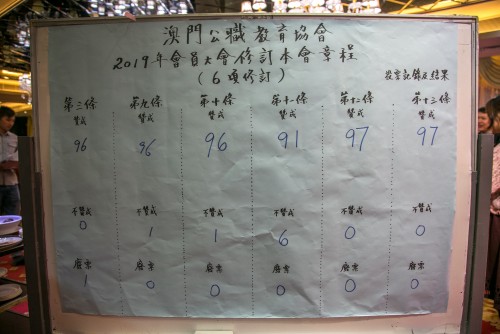 澳門公職教育協會
2019年會員大會修訂本會章程
(6項修訂)
投票記錄及結果
第三條 第九條 第十條 第十一條 第十二條 第十三條
贊成 贊成 贊成 贊成 贊成 贊成
96 96 96 91 97 97
不贊成 不贊成 不贊成 不贊成 不贊成 不贊成
0 1 1 6 0 0
廢票 廢票 廢票 廢票 廢票 廢票
1 0 0 0 0 0